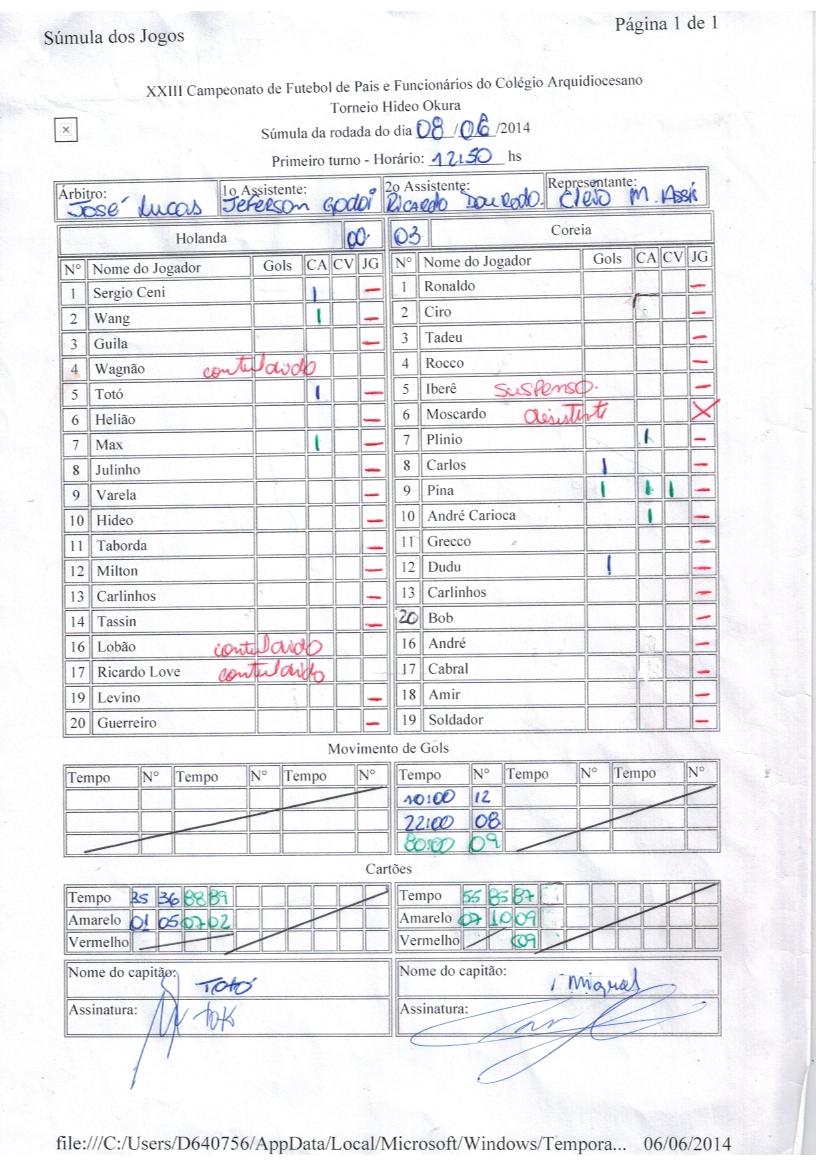 Súmula dos Jogos
Página 1 de 1
XXIII Campeonato de Futebol de Pais e Funcionários do Colégio Arquidiocesano
Torneio Hideo Okura
Súmula da rodada do dia 08 /06 /2014
Primeiro turno - Horário: 12:50 hs
Árbitro: José Lucas 1o Assistente: Jeferson Godoi 2o Assistente: Ricardo Dourado. Representante: M. Assis
Holanda 00 03 Coreia
Nº Nome do Jogador Gols CA CV JG Nº Nome do Jogador Gols CA CV JG
1 Sergio Ceni | — 1 Ronaldo —
2 Wang | — 2 Ciro —
3 Guila — 3 Tadeu —
4 Wagnão contundido 4 Rocco —
5 Totó | — 5 Iberê suspenso. —
6 Helião — 6 Moscardo desistente X
7 Max | — 7 Plinio | —
8 Julinho — 8 Carlos | —
9 Varela — 9 Pina | | | —
10 Hideo — 10 André Carioca | —
11 Taborda — 11 Grecco —
12 Milton — 12 Dudu | —
13 Carlinhos — 13 Carlinhos —
14 Tassin — 20 Bob —
16 Lobão contundido 16 André —
17 Ricardo Love contundido 17 Cabral —
19 Levino — 18 Amir —
20 Guerreiro — 19 Soldador —
Movimento de Gols
Tempo Nº Tempo Nº Tempo Nº Tempo Nº Tempo Nº Tempo Nº
10:00 12
22:00 08
80:00 09
Cartões
Tempo 35 36 88 89 Tempo 55 85 87
Amarelo 01 05 07 02 Amarelo 07 10 09
Vermelho Vermelho 09
Nome do capitão: Totó Nome do capitão:
Assinatura: Assinatura:
file:///C:/Users/D640756/AppData/Local/Microsoft/Windows/Tempora... 06/06/2014